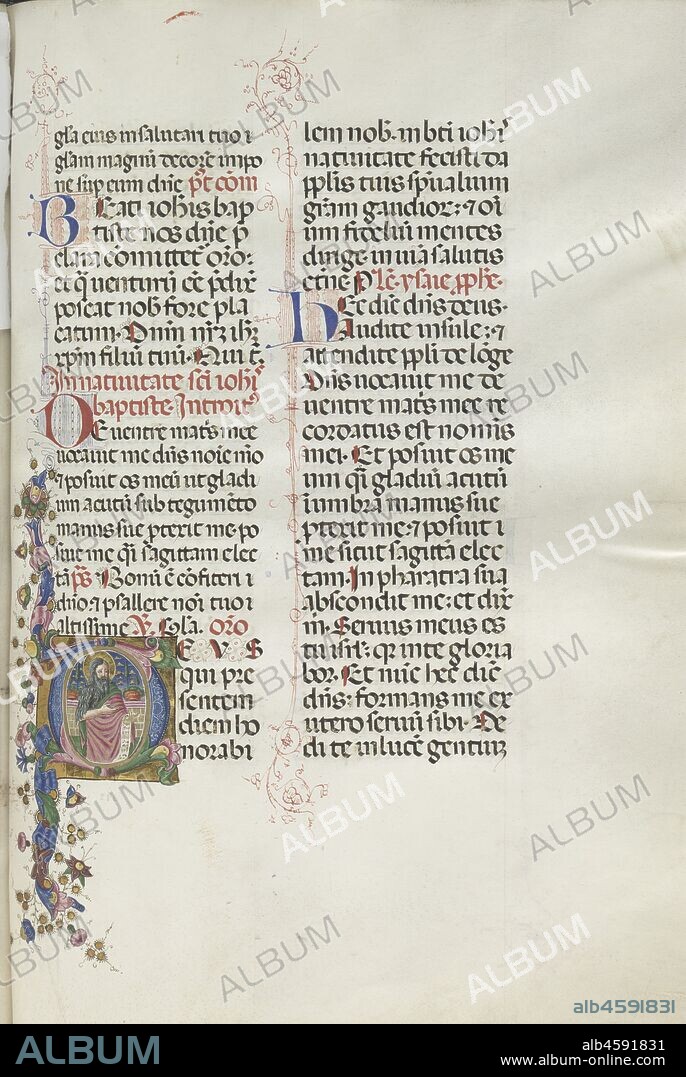 gła eius in salutari tuo ⁊
głam magnũ decorẽ impo
ne sup eum dñe pꝰt cõm
Beati iohis bap
tiste nos dñe p
clara comittet̃ oro:
et q̃ venturũ cẽ p̃dix̃
poscat nob fore pla
catum. Dnm nr̃z ihz̃
xpm filiũ tuũ. Qui t̃.
In natiuitate sc̃i iohis̃
baptiste. Introitꝰ
De ventre mats mee
uocauit me dñs noĩe mo
⁊ posuit os meũ ut gladi
um acutũ sub tegumẽto
manus sue ptexit me. po
sue me q̃i sagittam elec
tã. pꝰs Bonũ ẽ cõfiteri
dño: ⁊ psallere noĩ tuo
altissime. V̾. Gła. Oro
EVS
qui pre
sentem
diem ho
norabi
lem nob. in bti iohis̃
natiuitate fecisti: da
pplis tuis spũalium
grãm gaudior: ⁊ oĩ
um fideliũ mentes
dirige in uiã salutis
etñe. P Lẽ. ysaie pphe.
Hec dic̃ dñs deus.
Audite insule: ⁊
attendite ppli de lõge
Dñs uocauit me de
uentre mats mee re
cordatus est nomis
mei. Et posuit os me
um q̃i gladiũ acutũ
in umbra manus sue
ptexit me: ⁊ posuit
me sicut sagittã elec
tam. In pharatra sua
abscondit me: et dix̃
m̃. Seruus meus es
tu isrł: qr in te gloria
bor. Et nũc hec dic̃
dñs: formans me ex
utero seruũ sibi. De
di te in lucẽ gentium
alb4591831
ALBUM
alb4591831
www.album-online.com